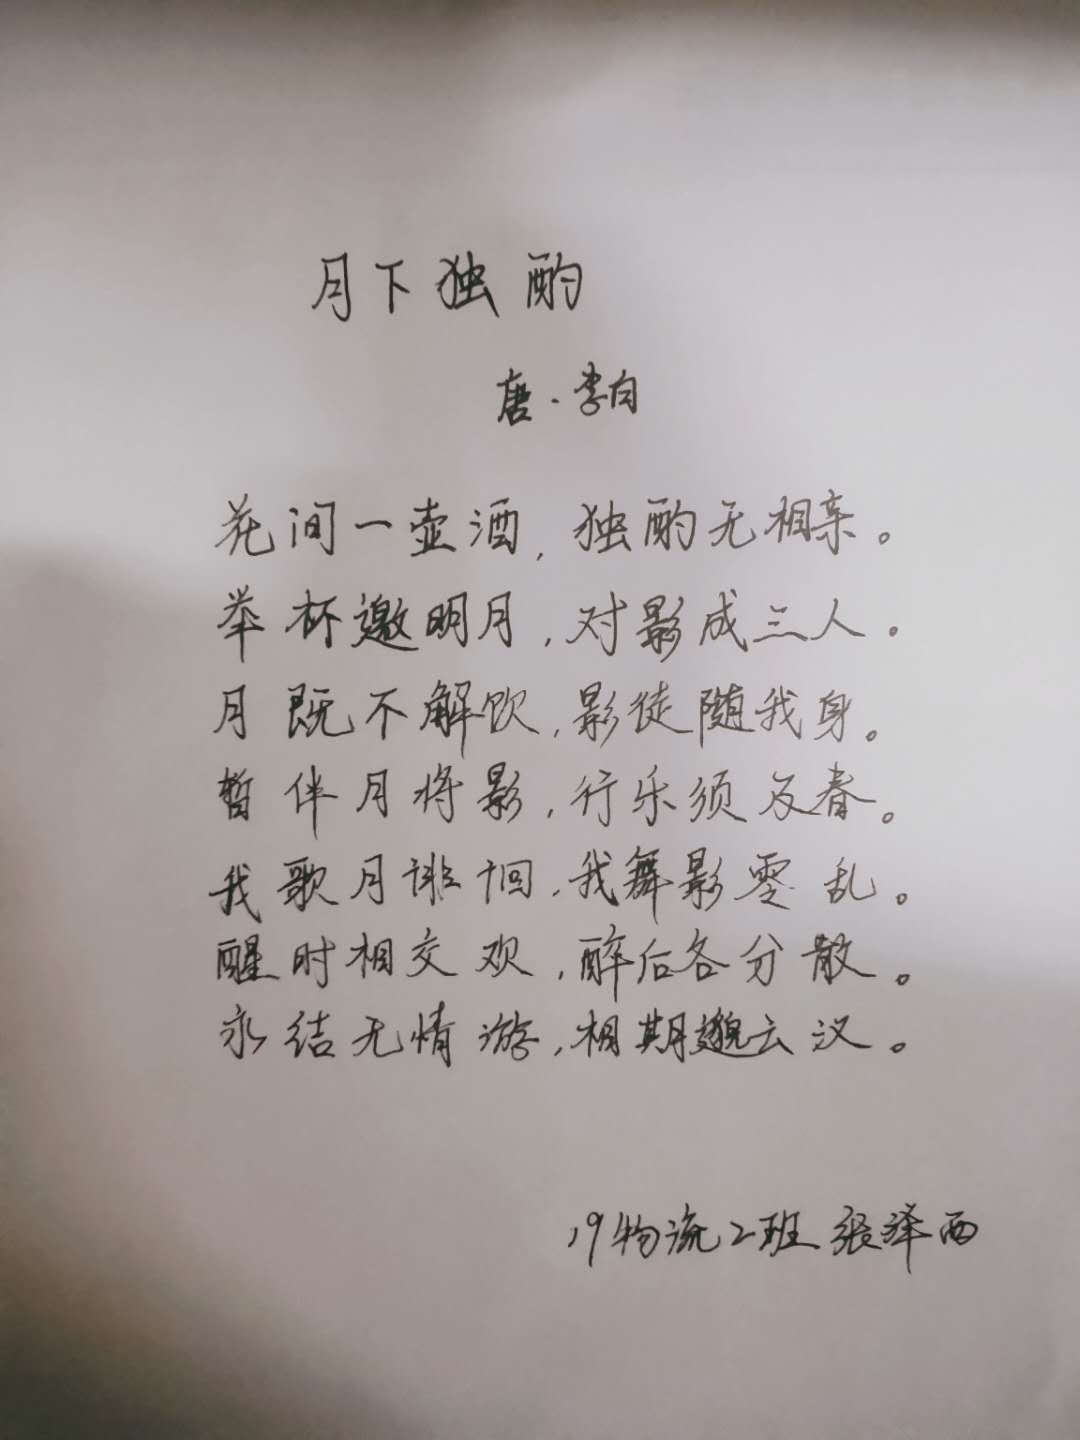 月下独酌
唐·李白
花间一壶酒,独酌无相亲。
举杯邀明月,对影成三人.
月既不解饮,影徒随我身。
暂伴月将影,行乐须及春。
我歌月徘徊,我舞影零乱。
醒时相交欢,醉后各分散。
永结无情游,相期邈云汉。
19物流2班 张泽西